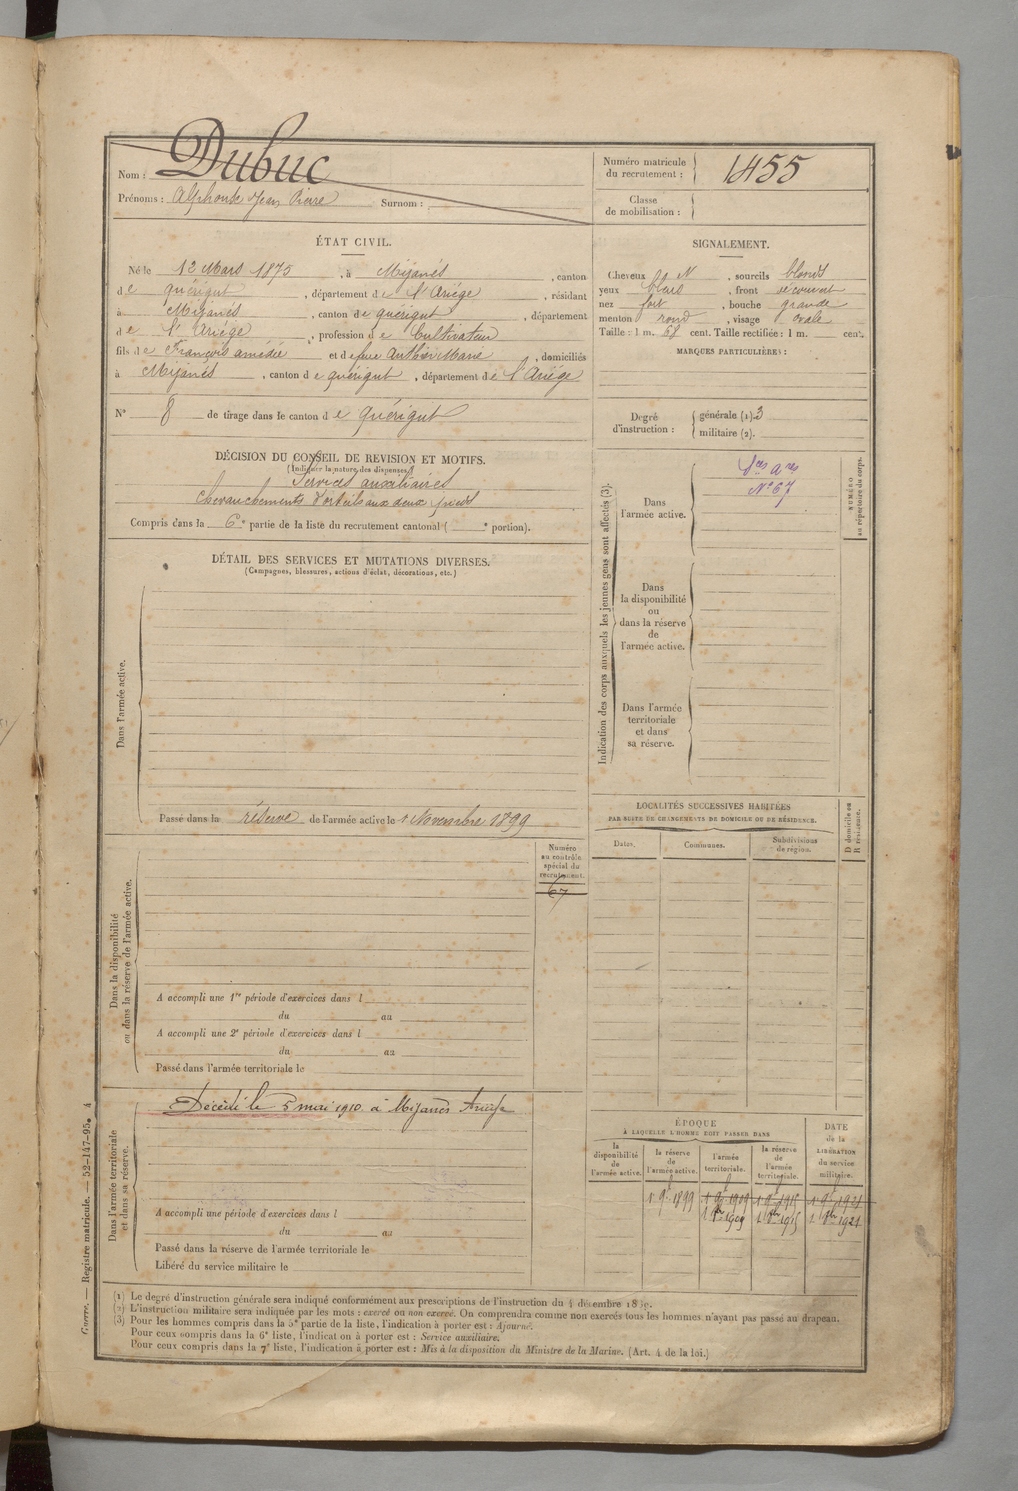 Nom : Dubuc
Prénoms : Alphonse Jean Pierre Surnom :
Numéro matricule
du recrutement : 1455
Classe
de mobilisation :
ÉTAT CIVIL.
Né le 12 Mars 1875, à Mijanés, canton
de quérigut, département de l'Ariége, résidant
à Mijanés, canton de quérigut, département
de l'Ariége, profession de Cultivateur
fils de François amédié et de feue Authier Marie, domiciliés
à Mijanés, canton de quérigut, département de l'Ariége
N° 8 de tirage dans le canton de quérigut
SIGNALEMENT.
Cheveux bl N, sourcils blonds
yeux bleus, front découvert
nez fort, bouche grande
menton rond, visage ovale
Taille : 1 m. 68 cent. Taille rectifiée : 1 m. cent.
MARQUES PARTICULIÈRES :
Degré
d'instruction :
générale (1). 3
militaire (2).
DÉCISION DU CONSEIL DE REVISION ET MOTIFS.
(Indiquer la nature des dispenses.)
Services auxiliaires
Chevauchements d'orteils aux deux pieds
Compris dans la 6e partie de la liste du recrutement cantonal ( e portion).
DÉTAIL DES SERVICES ET MUTATIONS DIVERSES.
(Campagnes, blessures, actions d'éclat, décorations, etc.)
Dans l'armée active.
Passé dans la réserve de l'armée active le 1 Novembre 1899
Indication des corps auxquels les jeunes gens sont affectés (3).
Dans
l'armée active.
Sces Ares
N° 67
NUMÉRO
au répertoire du corps.
Dans
la disponibilité
ou
dans la réserve
de
l'armée active.
Dans l'armée
territoriale
et dans
sa réserve.
LOCALITÉS SUCCESSIVES HABITÉES
PAR SUITE DE CHANGEMENTS DE DOMICILE OU DE RÉSIDENCE.
Dates.
Communes.
Subdivisions
de région.
D domicile ou
R résidence.
Dans la disponibilité
ou dans la réserve de l'armée active.
Numéro
au contrôle
spécial du
recrutement.
67
A accompli une 1re période d'exercices dans l
du au
A accompli une 2e période d'exercices dans l
du au
Passé dans l'armée territoriale le
Dans l'armée territoriale
et dans sa réserve.
Décédé le 5 mai 1910 à Mijanés Ariége
A accompli une période d'exercices dans l
du au
Passé dans la réserve de l'armée territoriale le
Libéré du service militaire le
ÉPOQUE
À LAQUELLE L'HOMME DOIT PASSER DANS
la
disponibilité
de
l'armée active.
la réserve
de
l'armée active.
l'armée
territoriale.
la réserve
de
l'armée
territoriale.
DATE
de la
LIBÉRATION
du service
militaire.
1. 9bre 1899 1. 9bre 1909 1. 9bre 1915 1. 9bre 1921
1. 8bre 1909 1. 8bre 1915 1. 8bre 1921
Guerre. — Registre matricule. — 52-147-95. 4
(1) Le degré d'instruction générale sera indiqué conformément aux prescriptions de l'instruction du 4 décembre 1889.
(2) L'instruction militaire sera indiquée par les mots : exercé ou non exercé. On comprendra comme non exercés tous les hommes n'ayant pas passé au drapeau.
(3) Pour les hommes compris dans la 5e partie de la liste, l'indication à porter est : Ajourné.
Pour ceux compris dans la 6e liste, l'indication à porter est : Service auxiliaire.
Pour ceux compris dans la 7e liste, l'indication à porter est : Mis à la disposition du Ministre de la Marine. (Art. 4 de la loi.)